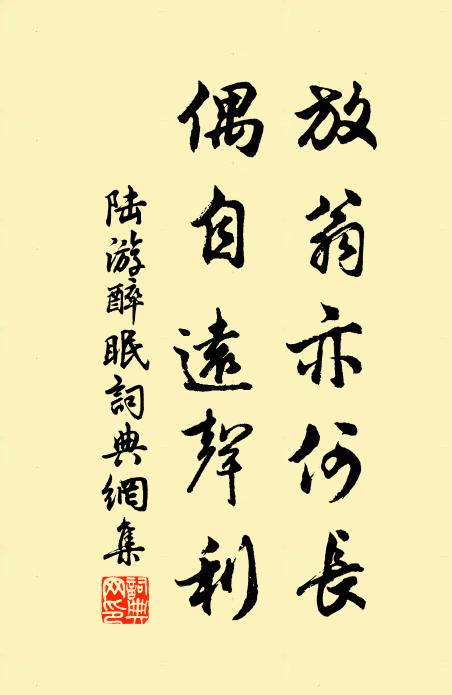 放翁亦何長
偶自遠聲利
陸游醉眠詞典網集
詞典網印